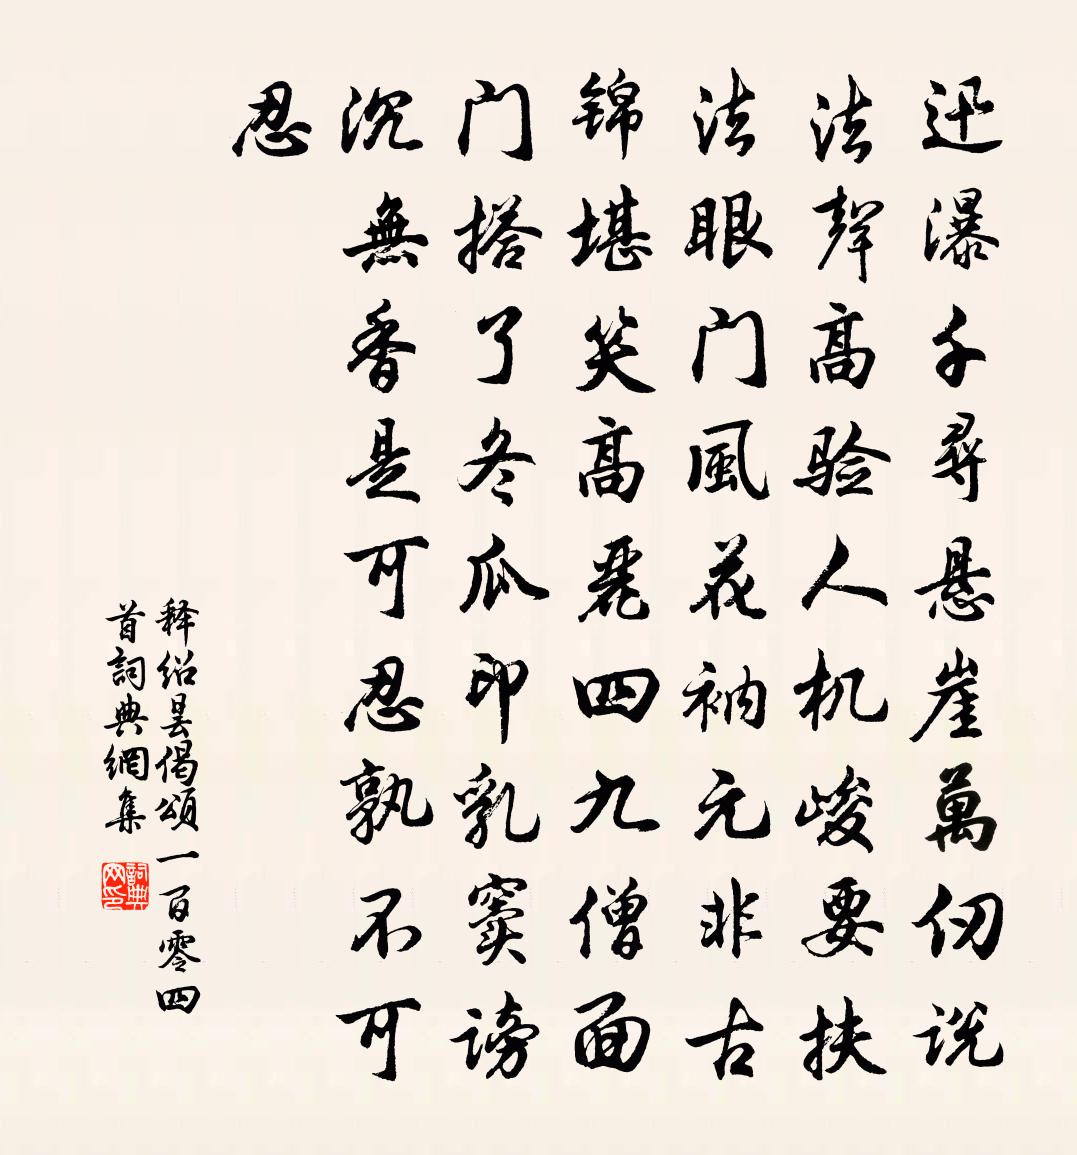 迅瀑千尋悬崖萬仞说
法聲高验人机峻要扶
法眼门風花衲元非古
锦堪笑高麗四九僧面
门搭了冬瓜印乳窦谤
沉無香是可忍孰不可
忍
释绍昙偈頌一百零四
首詞典網集
詞典
网印